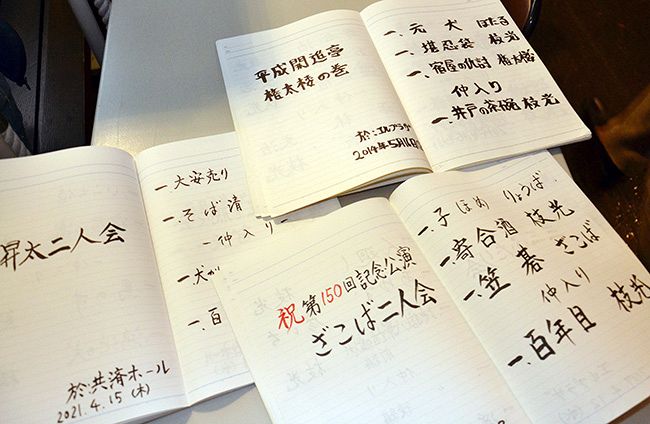 平成開進亭
権太楼の巻
於:エルプラザ
2014年5月
一、元犬 ほたる
一、堪忍袋 枝光
一、宿屋の仇討 権太楼
仲入り
一、井戸の茶碗 枝光
昇太二人会
於:共済ホール
2021.4.15(木)
一、大安売り
一、そば清
仲入り
一、犬が
一、百
祝 第150回記念公演
ざこば二人会
一、子ほめ りょうば
一、寄合酒 枝光
一、笠碁 ざこば
仲入り
一、百年目 枝光